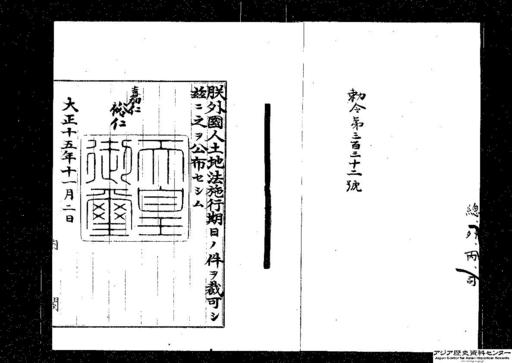 勅令第三百三十三號
朕外國人土地法施行期日ノ件ヲ裁可シ
茲ニ之ヲ公布セシム
嘉仁
裕仁
天皇
御璽
大正十五年十一月二日
內閣
アジア歴史資料センター
Japan Center for Asian Historical Records